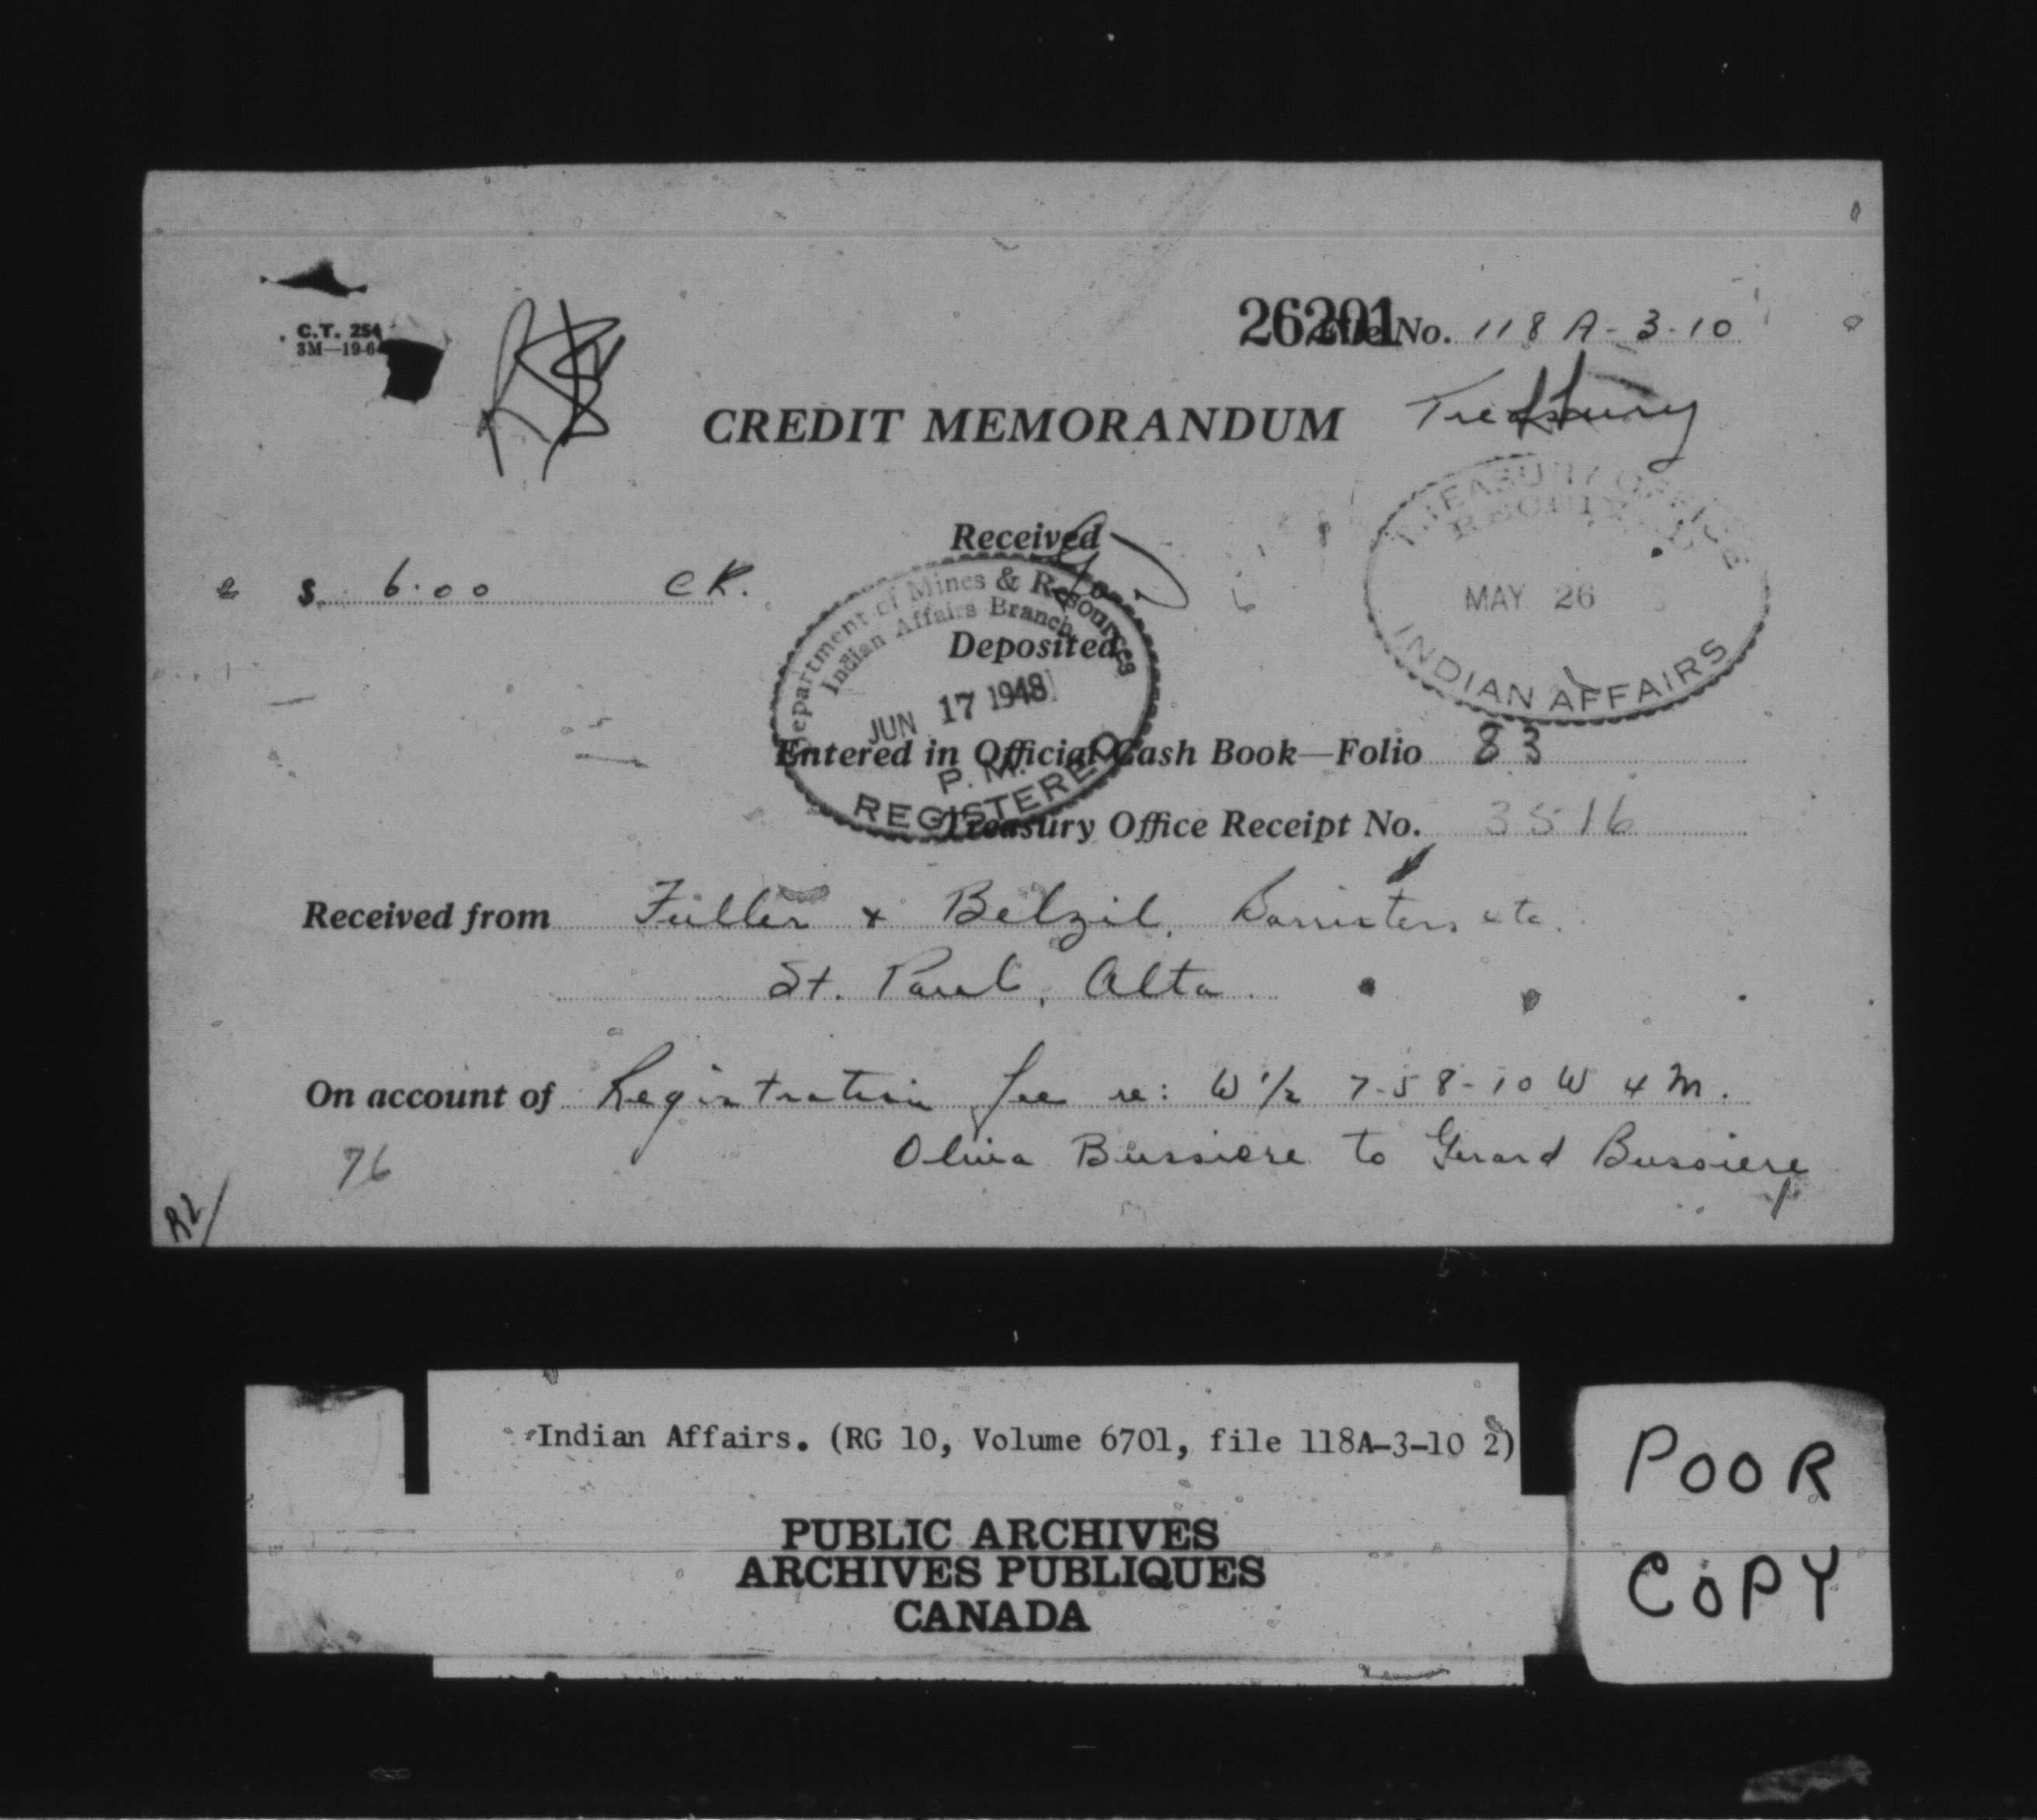 C.T. 254
3M—19-6
26201
File No. 118 A-3-10
Treasury
CREDIT MEMORANDUM
TREASURY OFFICE
RECEIVED
MAY 26
INDIAN AFFAIRS
Received
$ 6.00 CK.
Department of Mines & Resources
Indian Affairs Branch
Deposited
JUN 17 1948
P. M.
REGISTERED
Entered in Official Cash Book—Folio 83
Treasury Office Receipt No. 3516
Received from Fuller & Belzil, Barristers etc.
St. Paul, Alta.
On account of Registration fee re: W 1/2 7-58-10 W 4 M.
76 Oliva Bussiere to Gerard Bussiere
Indian Affairs. (RG 10, Volume 6701, file 118A-3-10 2)
PUBLIC ARCHIVES
ARCHIVES PUBLIQUES
CANADA
POOR
COPY